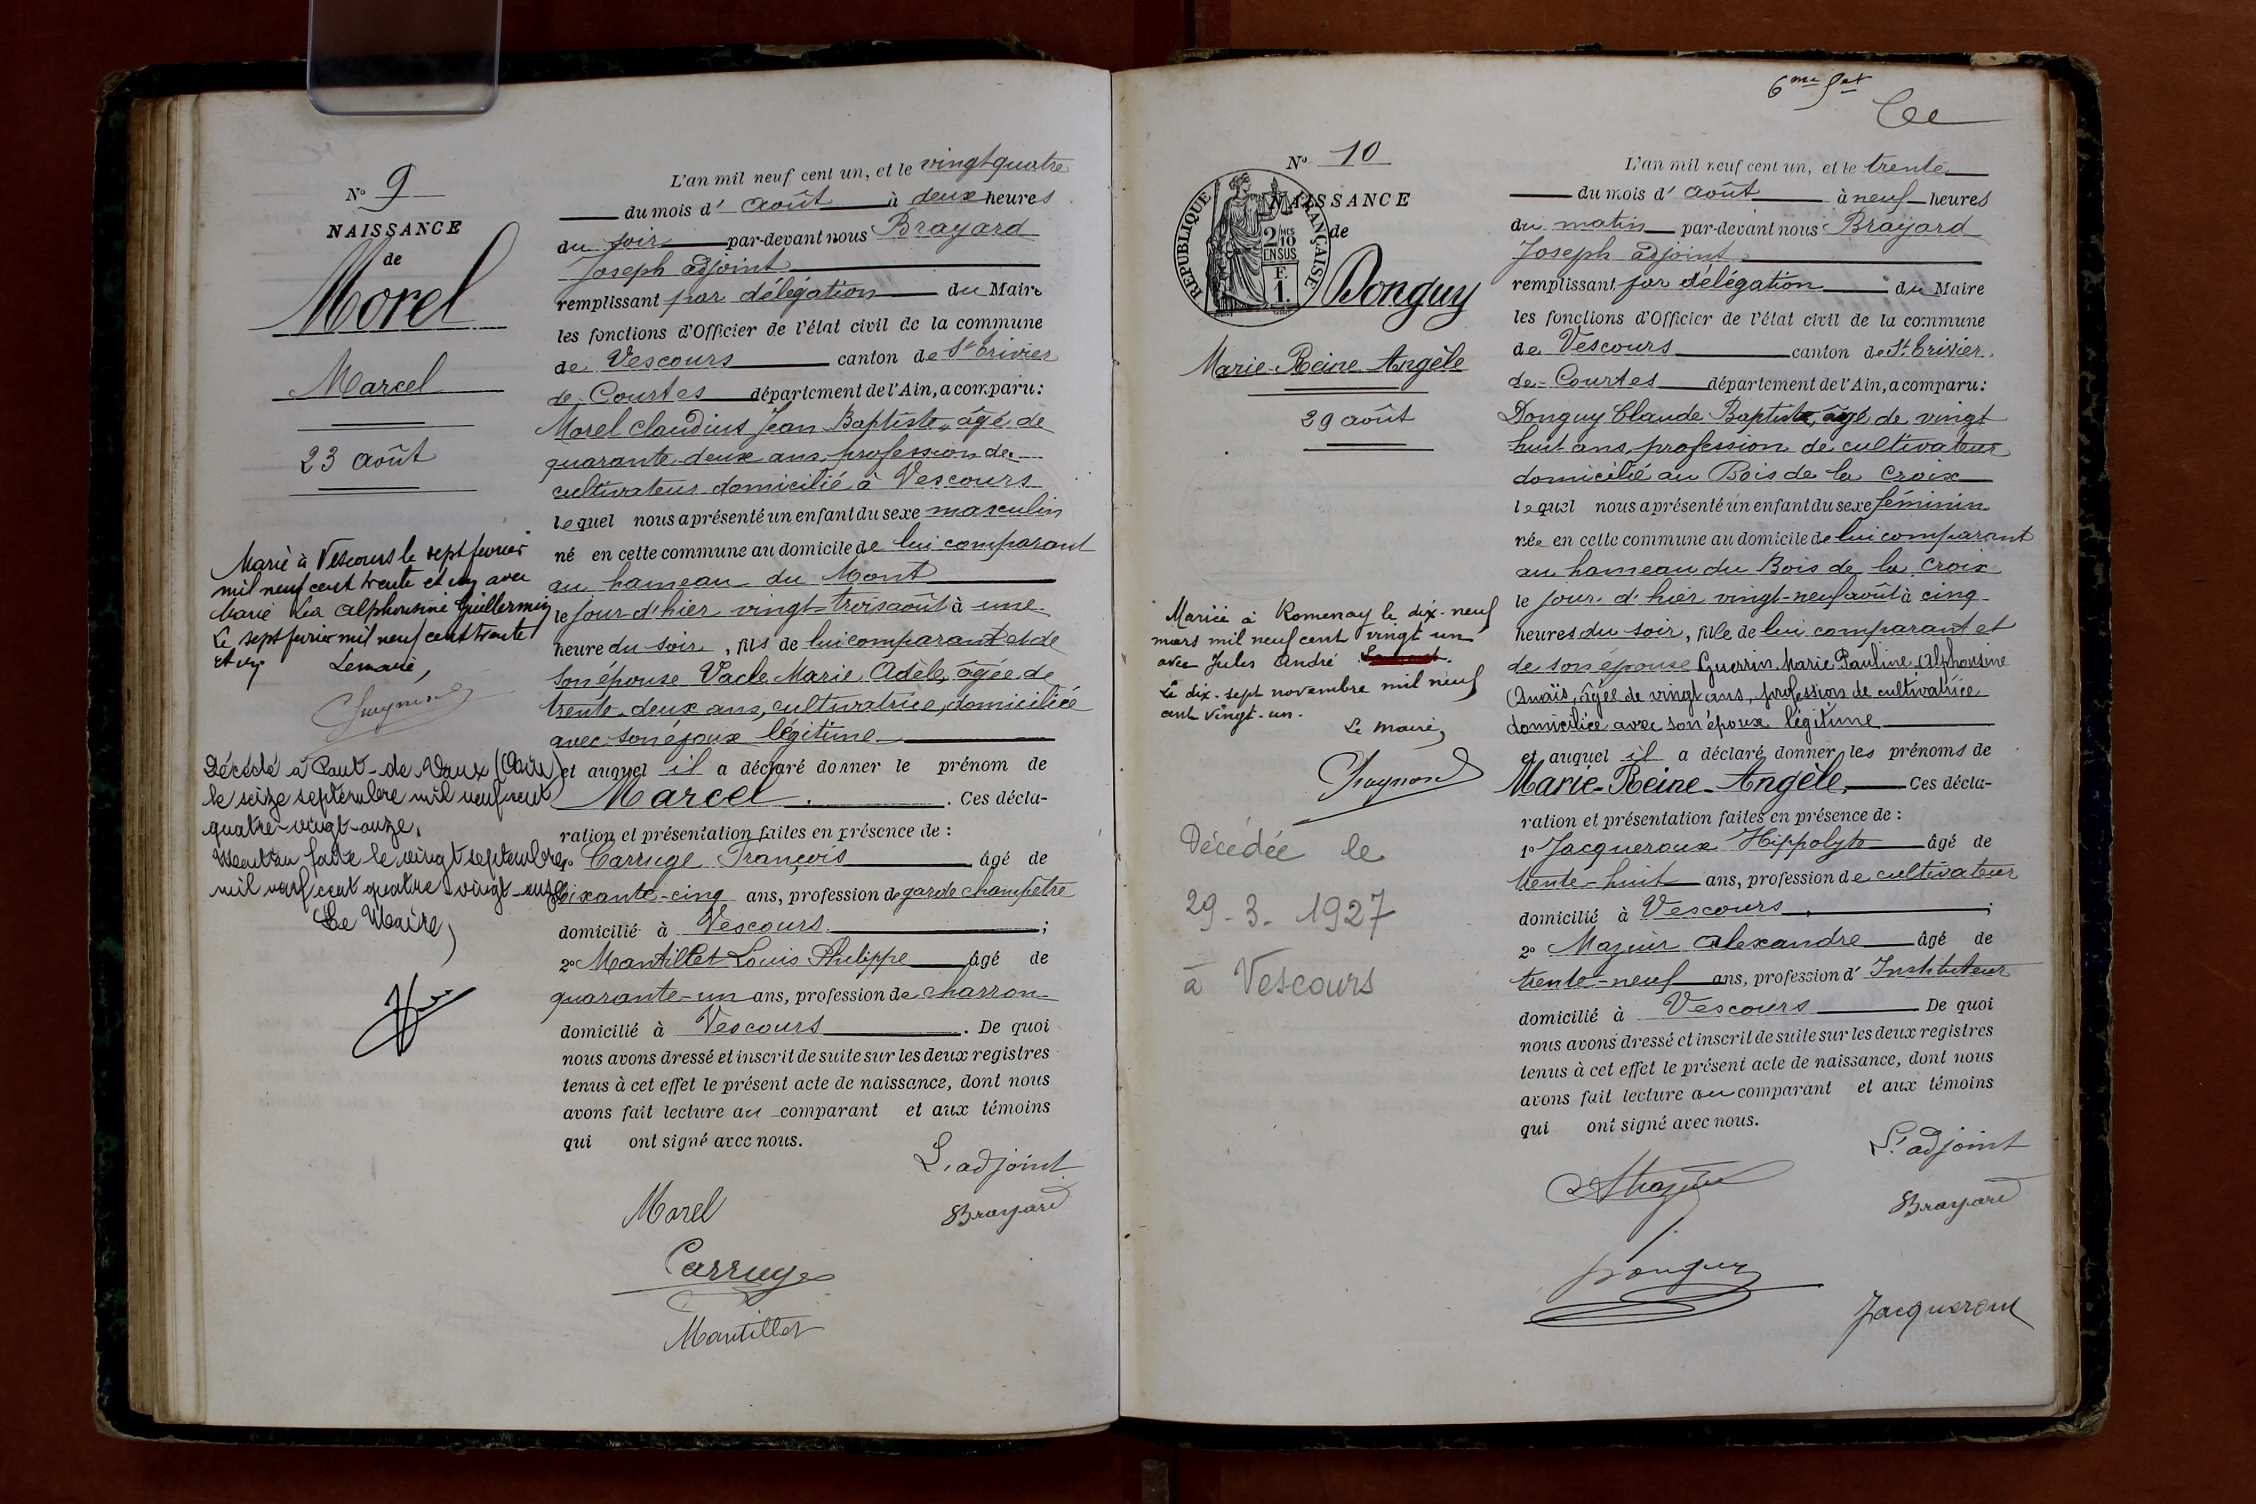 N° 9
NAISSANCE
de
Morel
Marcel
23 août
Marié à Vescours le sept fevrier
mil neuf cent trente et un avec
Marie Léa Alphonsine Guillermin
Le sept fevrier mil neuf cent trente
et un Le maire,
Décédé à Pont-de-Vaux (Ain)
le seize septembre mil neuf cent
quatre-vingt-onze.
Mention faite le vingt septembre
mil neuf cent quatre-vingt-onze
Le Maire,
L'an mil neuf cent un, et le vingt quatre
du mois d' août à deux heures
du soir par-devant nous Brayard
Joseph adjoint
remplissant par délégation du Maire
les fonctions d'Officier de l'état civil de la commune
de Vescours canton de St Trivier
de Courtes département de l'Ain, a comparu :
Morel Claudius Jean Baptiste, âgé de
quarante-deux ans, profession de
cultivateur domicilié à Vescours
lequel nous a présenté un enfant du sexe masculin
né en cette commune au domicile de lui comparant
au hameau du Mont
le jour d'hier vingt-trois août à une
heure du soir, fils de lui comparant et de
son épouse Vacle Marie Adèle, âgée de
trente-deux ans, cultivatrice, domiciliée
avec son époux légitime
et auquel il a déclaré donner le prénom de
Marcel. Ces décla-
ration et présentation faites en présence de :
1° Carruge François âgé de
soixante-cinq ans, profession de garde champêtre
domicilié à Vescours ;
2° Mantillet Louis Philippe âgé de
quarante-un ans, profession de charron
domicilié à Vescours. De quoi
nous avons dressé et inscrit de suite sur les deux registres
tenus à cet effet le présent acte de naissance, dont nous
avons fait lecture au comparant et aux témoins
qui ont signé avec nous.
L'adjoint
Morel Brayard
Carruge
Mantillet
6me
N° 10
NAISSANCE
de
RÉPUBLIQUE FRANÇAISE
2/10 EN SUS
F.
1.
Donguy
Marie-Reine-Angèle
29 août
Mariée à Romenay le dix-neuf
mars mil neuf cent vingt un
avec Jules André
Le dix-sept novembre mil neuf
cent vingt-un.
Le maire,
Décédée le
29-3-1927
à Vescours
L'an mil neuf cent un, et le trente
du mois d' août à neuf heures
du matin par-devant nous Brayard
Joseph adjoint
remplissant par délégation du Maire
les fonctions d'Officier de l'état civil de la commune
de Vescours canton de St. Trivier
de Courtes département de l'Ain, a comparu :
Donguy Claude Baptiste, âgé de vingt
huit ans, profession de cultivateur
domicilié au Bois de la Croix
lequel nous a présenté un enfant du sexe féminin
née en cette commune au domicile de lui comparant
au hameau du Bois de la Croix
le jour d'hier vingt-neuf août à cinq
heures du soir, fille de lui comparant et
de son épouse Guerrin Marie Pauline Alphonsine
Anaïs, âgée de vingt ans, profession de cultivatrice
domiciliée avec son époux légitime
et auquel il a déclaré donner les prénoms de
Marie-Reine-Angèle. Ces décla-
ration et présentation faites en présence de :
1° Jacqueroux Hippolyte âgé de
trente-huit ans, profession de cultivateur
domicilié à Vescours ;
2° Mazuir Alexandre âgé de
trente-neuf ans, profession d' Instituteur
domicilié à Vescours De quoi
nous avons dressé et inscrit de suite sur les deux registres
tenus à cet effet le présent acte de naissance, dont nous
avons fait lecture au comparant et aux témoins
qui ont signé avec nous.
L'adjoint
Brayard
Donguy
Jacqueroux